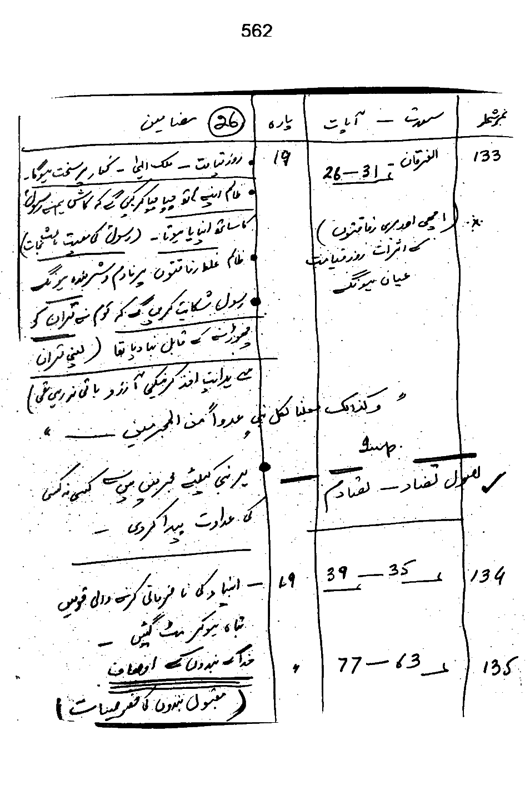 562
نمبر شمار سورت - آیات پارہ (26) مضامین
133 الفرقان 26 — 31 19 • روز قیامت - ملک الہی - کفار پر سخت ہوگا -
• ظالم اپنے ہاتھ چبا چبا کر کہیں گے کہ کاش ہم نے رسول
کا ساتھ اپنایا ہوتا - (رسول کی معیت
(اچھی اور بری رفاقتوں)
کے اثرات روز قیامت
عیاں ہونگے
• ظالم غلط رفاقتوں پر نادم و شرمندہ ہونگے
• رسول شکایت کریں گے کہ قوم نے قرآن کو
چھوڑنے کے قابل بنا دیا تھا (یعنی قرآن
سے ہدایت اخذ کرنیکی آرزو باقی نہ رہی تھی)
" وکذالک جعلنا لکل نبی عدواً من المجرمین — "
اصول تضاد - تصادم
• ہر نبی کیلئے مجرمین میں سے کسی نہ کسی
کی عداوت پیدا کردی -
134 35 — 39 19 - انبیاء کی نافرمانی کرنے والی قومیں
تباہ ہوکر مٹ گئیں -
135 63 — 77 " خدا کے بندوں کے اوصاف
(مقبول بندوں کی خصوصیات)